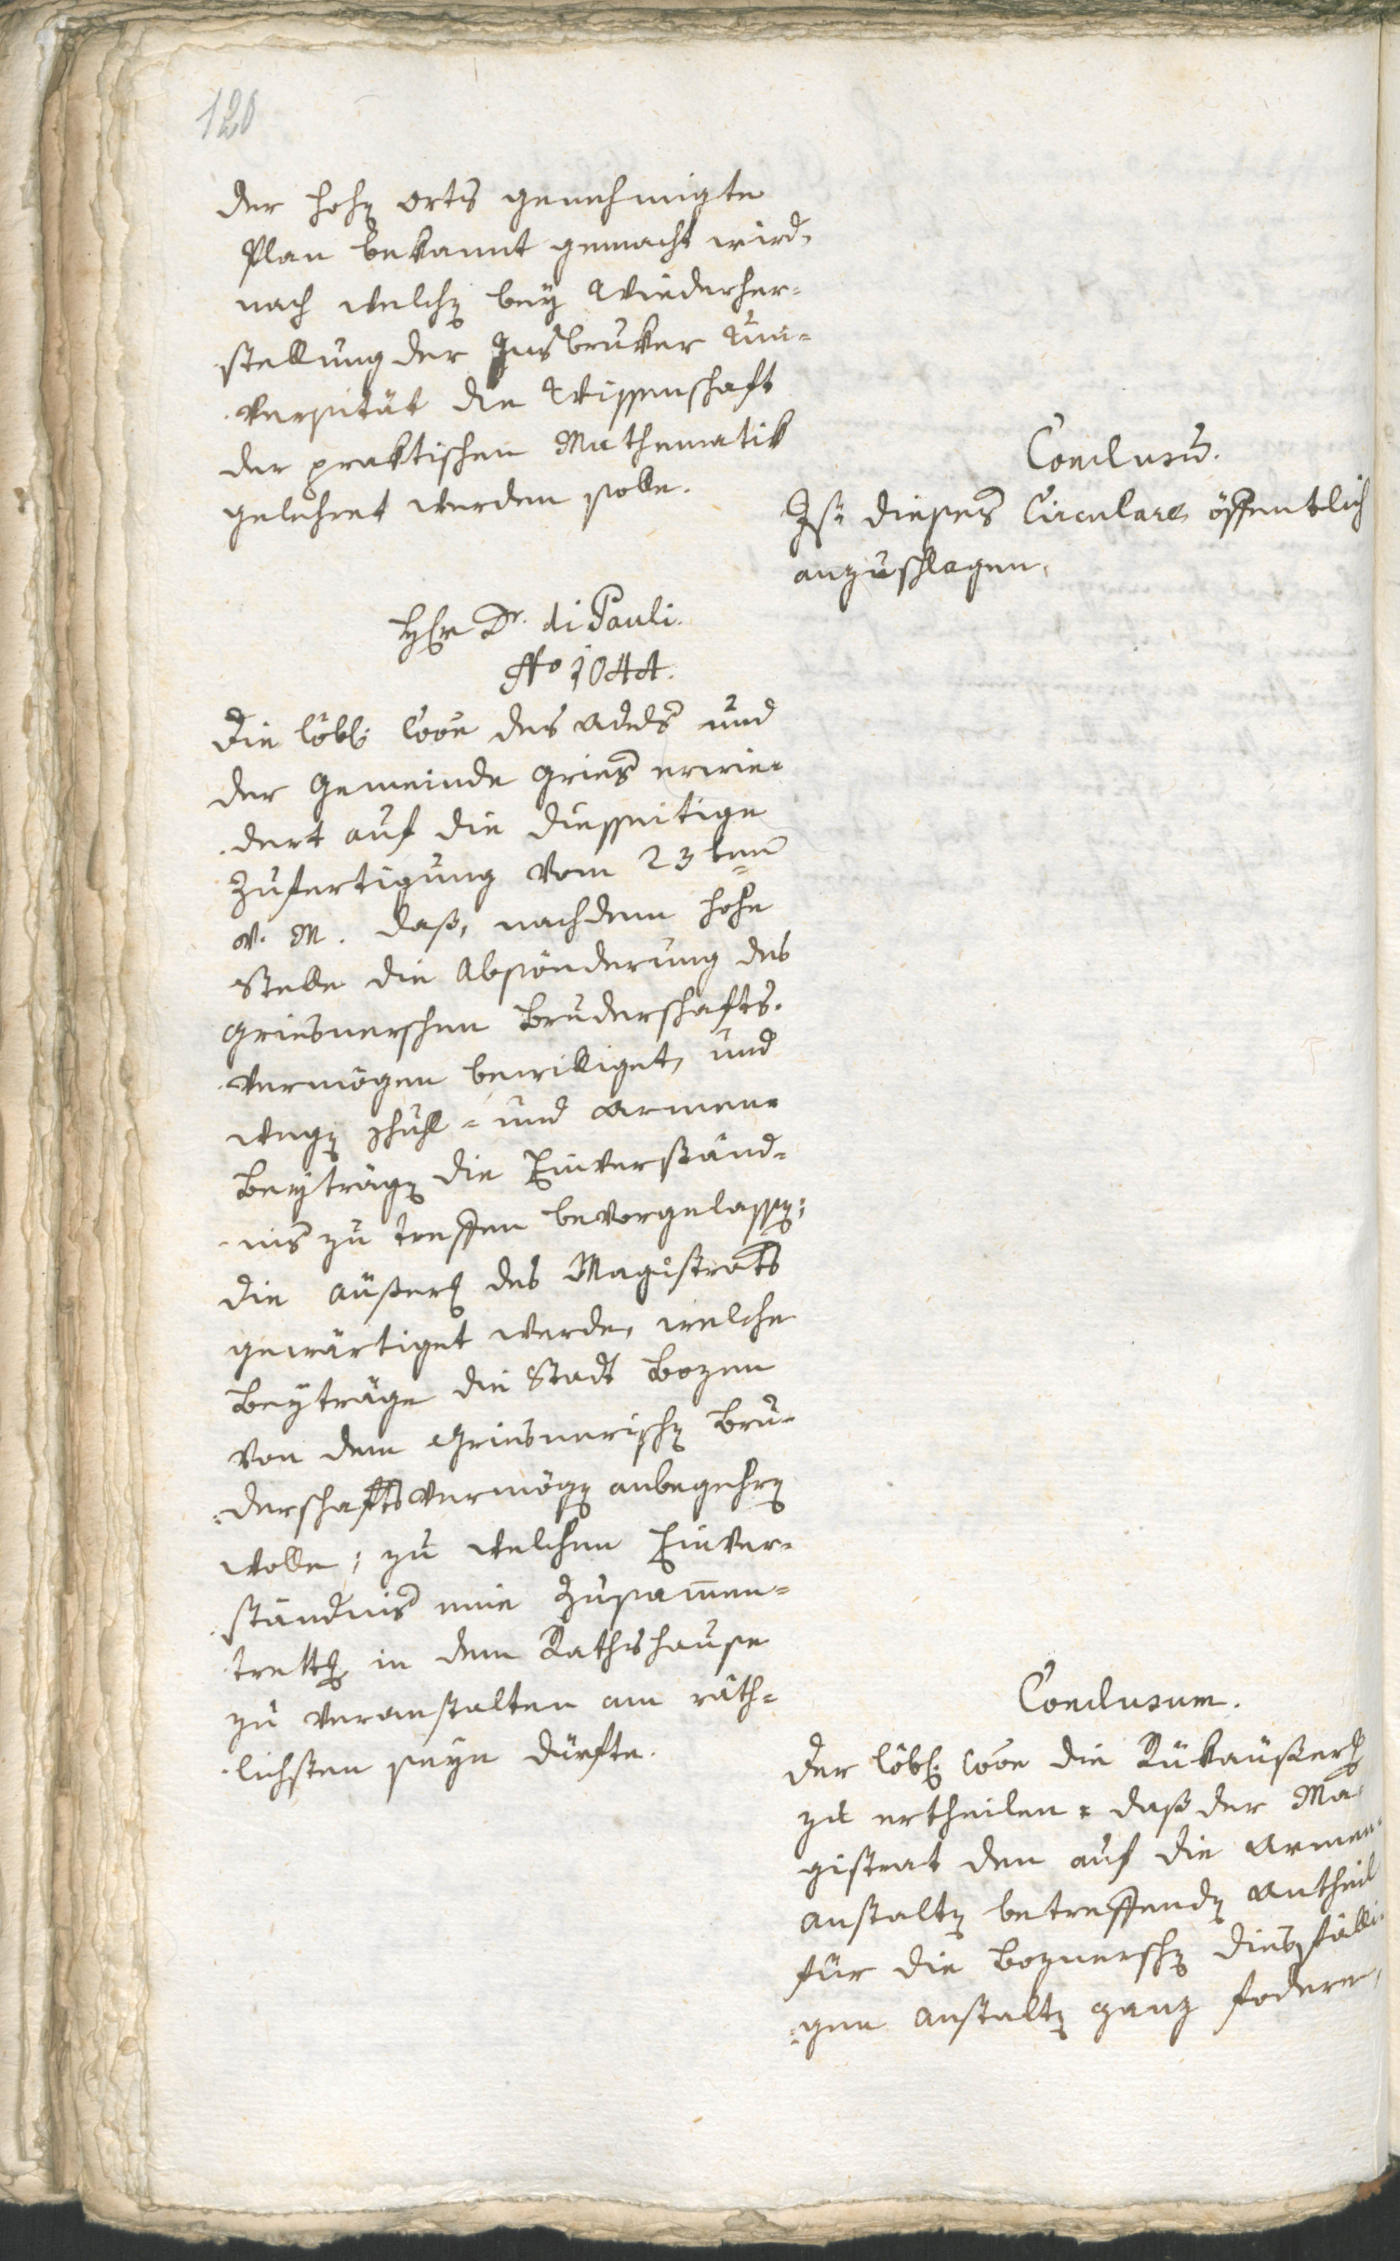 120
der hohen Orts genehmigte
Plan bekannt gemacht wird,
nach welchen bey Wiederher-
stellung der Insbruker Uni-
versität die Wissenschaft
der praktischen Mathematik
gelehret werden solle.
Conclusum.
Ist dieses Circulare öffentlich
anzuschlagen.
Herr Dr. di Pauli.
No 1044.
Die löbl. des Adels und
der Gemeinde Gries erwie-
dert auf die diesseitige
Zufertigung vom 23ten
v. M. daß, nachdem hohe
Stelle die Absönderung des
Griesnerschen Bruderschafts-
vermögen bewilliget, und
wegen Schull- und Armen-
Beyträgen die Einverständ-
nis zu treffen bevorgelassen;
die Äußerung des Magistrats
gewärtiget werde, welche
Beyträge die Stadt Bozen
von dem Griesnerischen Bru-
derschaftsvermögen anbegehren
wolle; zu welchem Einver-
ständnis eine Zusammen-
trettung in dem Rathshause
zu veranstalten am räth-
lichsten seyn dürfte.
Conclusum.
Der löbl. die Rükäußerung
zu ertheilen: daß der Ma-
gistrat den auf die Armen-
anstalten betreffenden Antheil
für die Boznerschen diesfälli-
gen Anstalten ganz fodere,